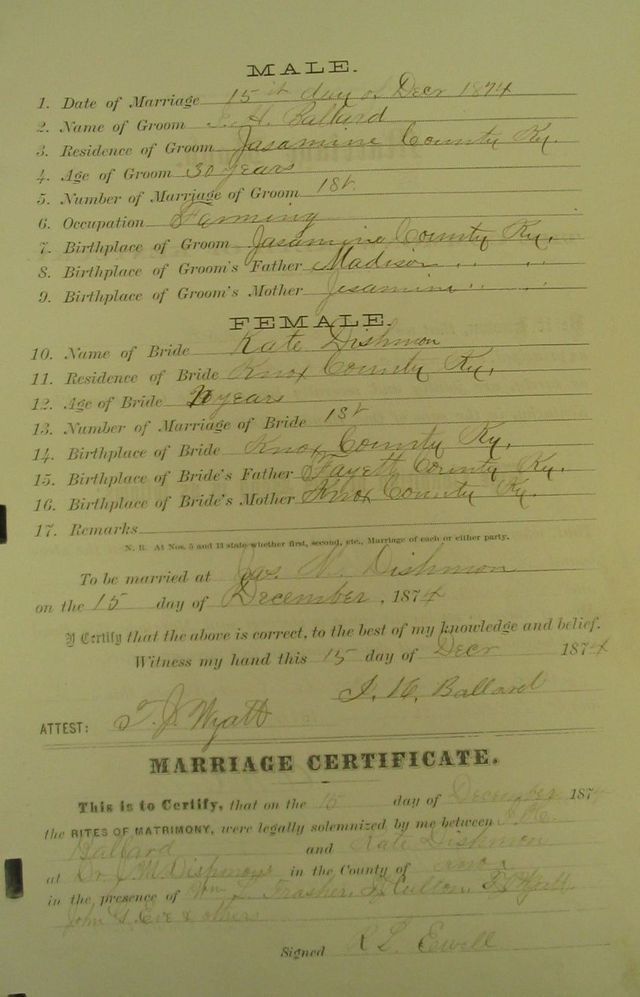 MALE.
1. Date of Marriage 15th day of Decr 1874
2. Name of Groom I. H. Ballard
3. Residence of Groom Jasamine County Ky.
4. Age of Groom 30 years
5. Number of Marriage of Groom 1st.
6. Occupation Farming
7. Birthplace of Groom Jasamine County Ky.
8. Birthplace of Groom's Father Madison " "
9. Birthplace of Groom's Mother Jesamine " "
FEMALE.
10. Name of Bride Kate Dishmon
11. Residence of Bride Knox County Ky.
12. Age of Bride years
13. Number of Marriage of Bride 1st
14. Birthplace of Bride Knox County Ky.
15. Birthplace of Bride's Father Fayett County Ky.
16. Birthplace of Bride's Mother Knox County Ky.
17. Remarks
N. B. At Nos. 5 and 13 state whether first, second, etc., Marriage of each or either party.
To be married at Jas. M. Dishmon
on the 15 day of December, 1874
I Certify that the above is correct, to the best of my knowledge and belief.
Witness my hand this 15 day of Decr 1874
I. H. Ballard
ATTEST: T. J. Wyatt
MARRIAGE CERTIFICATE.
This is to Certify, that on the 15 day of December 187
the RITES OF MATRIMONY, were legally solemnized by me between I. H.
Ballard and Kate Dishmon
at Dr. J. M. in the County of Knox
in the presence of Wm L.
John G. Eve & others
Signed R L Ewell